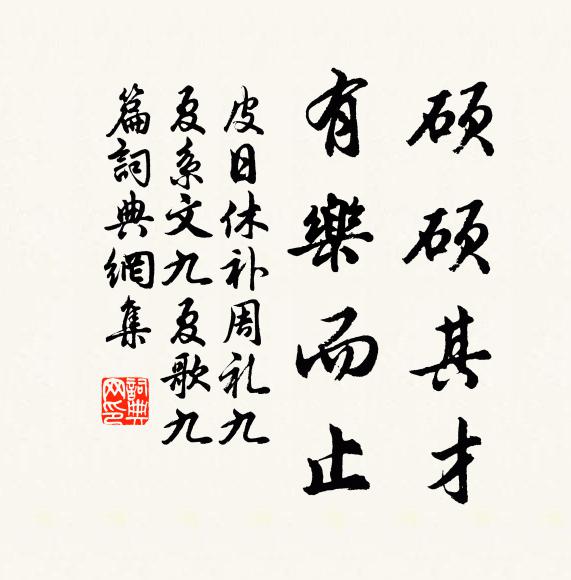 硕硕其才
有樂而止
皮日休补周礼九
夏系文九夏歌九
篇詞典網集
詞典网印